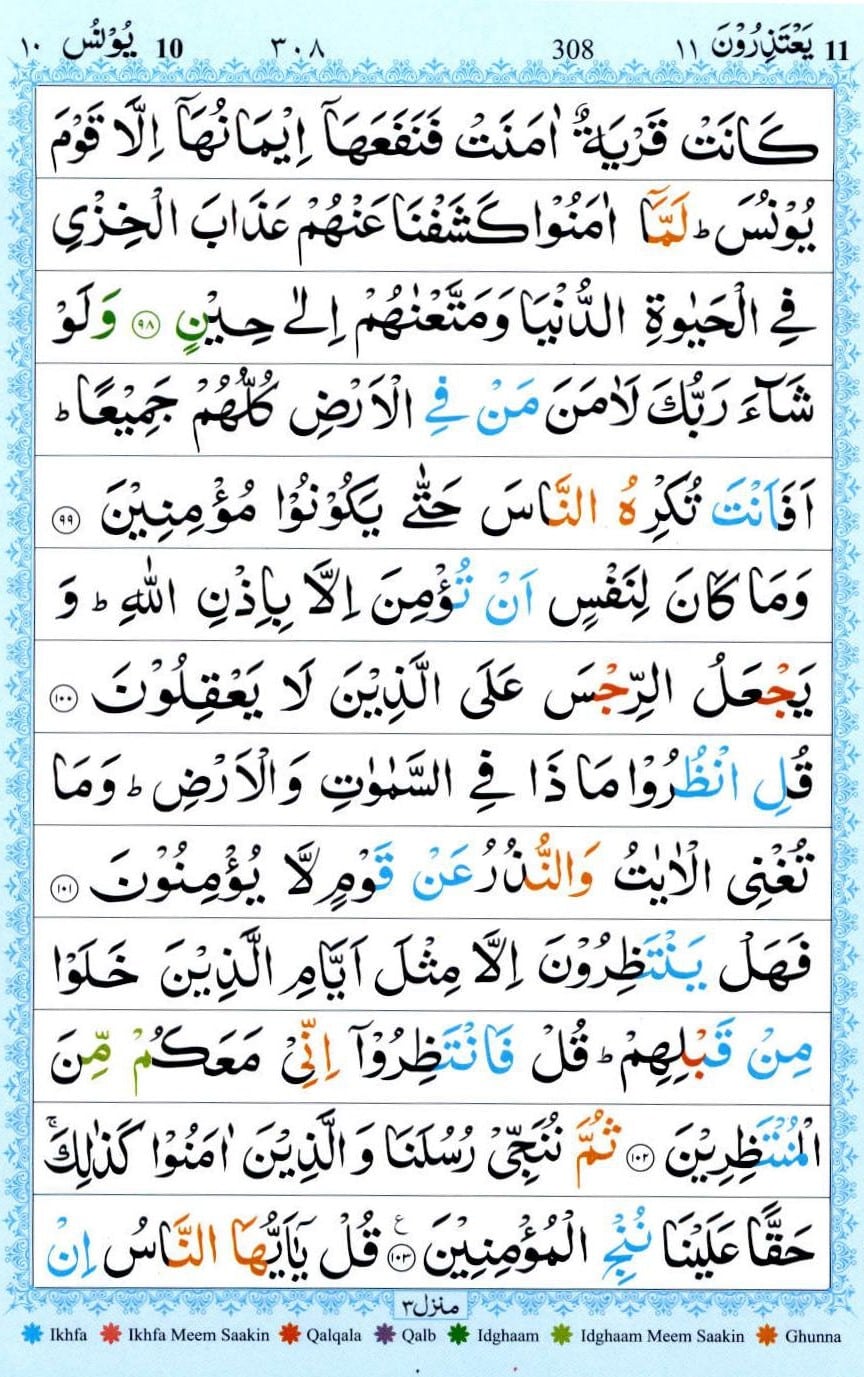 11 يَعْتَذِرُوْنَ ١١ 308 ٣٠٨ 10 يُوْنُس ١٠
كَانَتْ قَرْيَةٌ اٰمَنَتْ فَنَفَعَهَاۤ اِيْمَانُهَاۤ اِلَّا قَوْمَ
يُوْنُسَ ؕ لَمَّاۤ اٰمَنُوْا كَشَفْنَا عَنْهُمْ عَذَابَ الْخِزْيِ
فِي الْحَيٰوةِ الدُّنْيَا وَمَتَّعْنٰهُمْ اِلٰى حِيْنٍ ۹۸ وَلَوْ
شَآءَ رَبُّكَ لَاٰمَنَ مَنْ فِي الْاَرْضِ كُلُّهُمْ جَمِيْعًا ؕ
اَفَاَنْتَ تُكْرِهُ النَّاسَ حَتّٰى يَكُوْنُوْا مُؤْمِنِيْنَ ۹۹
وَمَا كَانَ لِنَفْسٍ اَنْ تُؤْمِنَ اِلَّا بِاِذْنِ اللّٰهِ ؕ وَ
يَجْعَلُ الرِّجْسَ عَلَى الَّذِيْنَ لَا يَعْقِلُوْنَ ۱۰۰
قُلِ انْظُرُوْا مَاذَا فِي السَّمٰوٰتِ وَالْاَرْضِ ؕ وَمَا
تُغْنِي الْاٰيٰتُ وَالنُّذُرُ عَنْ قَوْمٍ لَّا يُؤْمِنُوْنَ ۱۰۱
فَهَلْ يَنْتَظِرُوْنَ اِلَّا مِثْلَ اَيَّامِ الَّذِيْنَ خَلَوْا
مِنْ قَبْلِهِمْ ؕ قُلْ فَانْتَظِرُوْۤا اِنِّيْ مَعَكُمْ مِّنَ
الْمُنْتَظِرِيْنَ ۱۰۲ ثُمَّ نُنَجِّيْ رُسُلَنَا وَالَّذِيْنَ اٰمَنُوْا كَذٰلِكَ ۚ
حَقًّا عَلَيْنَا نُنْجِ الْمُؤْمِنِيْنَ ۱۰۳ ع قُلْ يٰۤاَيُّهَا النَّاسُ اِنْ
منزل ٣
Ikhfa Ikhfa Meem Saakin Qalqala Qalb Idghaam Idghaam Meem Saakin Ghunna